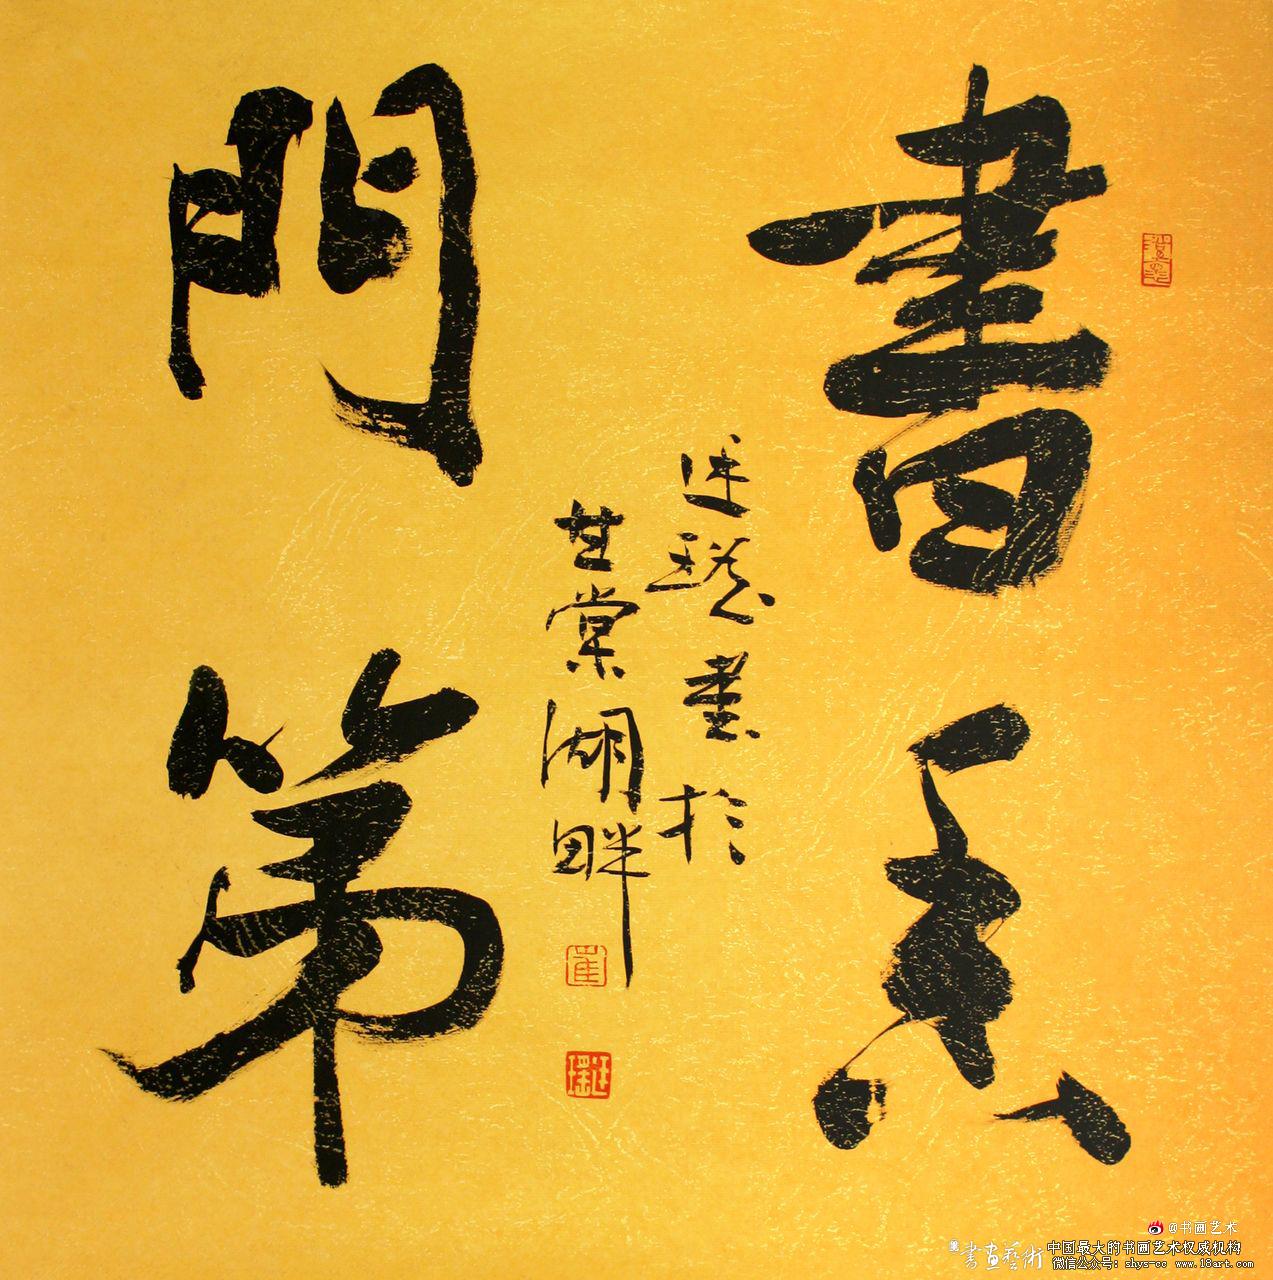 書香
門第
廷瑤書於
甘棠湖畔
崔
廷瑤
@书画艺术
書畫藝術
中国最大的书画艺术权威机构
微信公众号：shys-cc www.18art.com